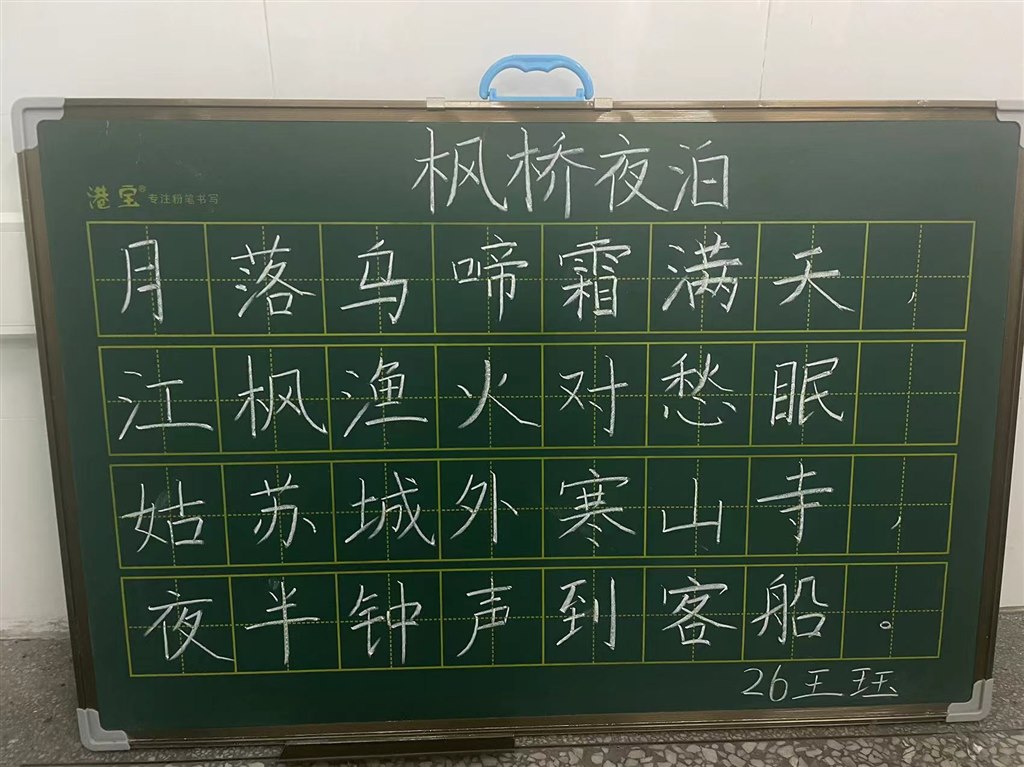 枫桥夜泊
港宝® 专注粉笔书写
月落乌啼霜满天，
江枫渔火对愁眠
姑苏城外寒山寺，
夜半钟声到客船。
26王珏